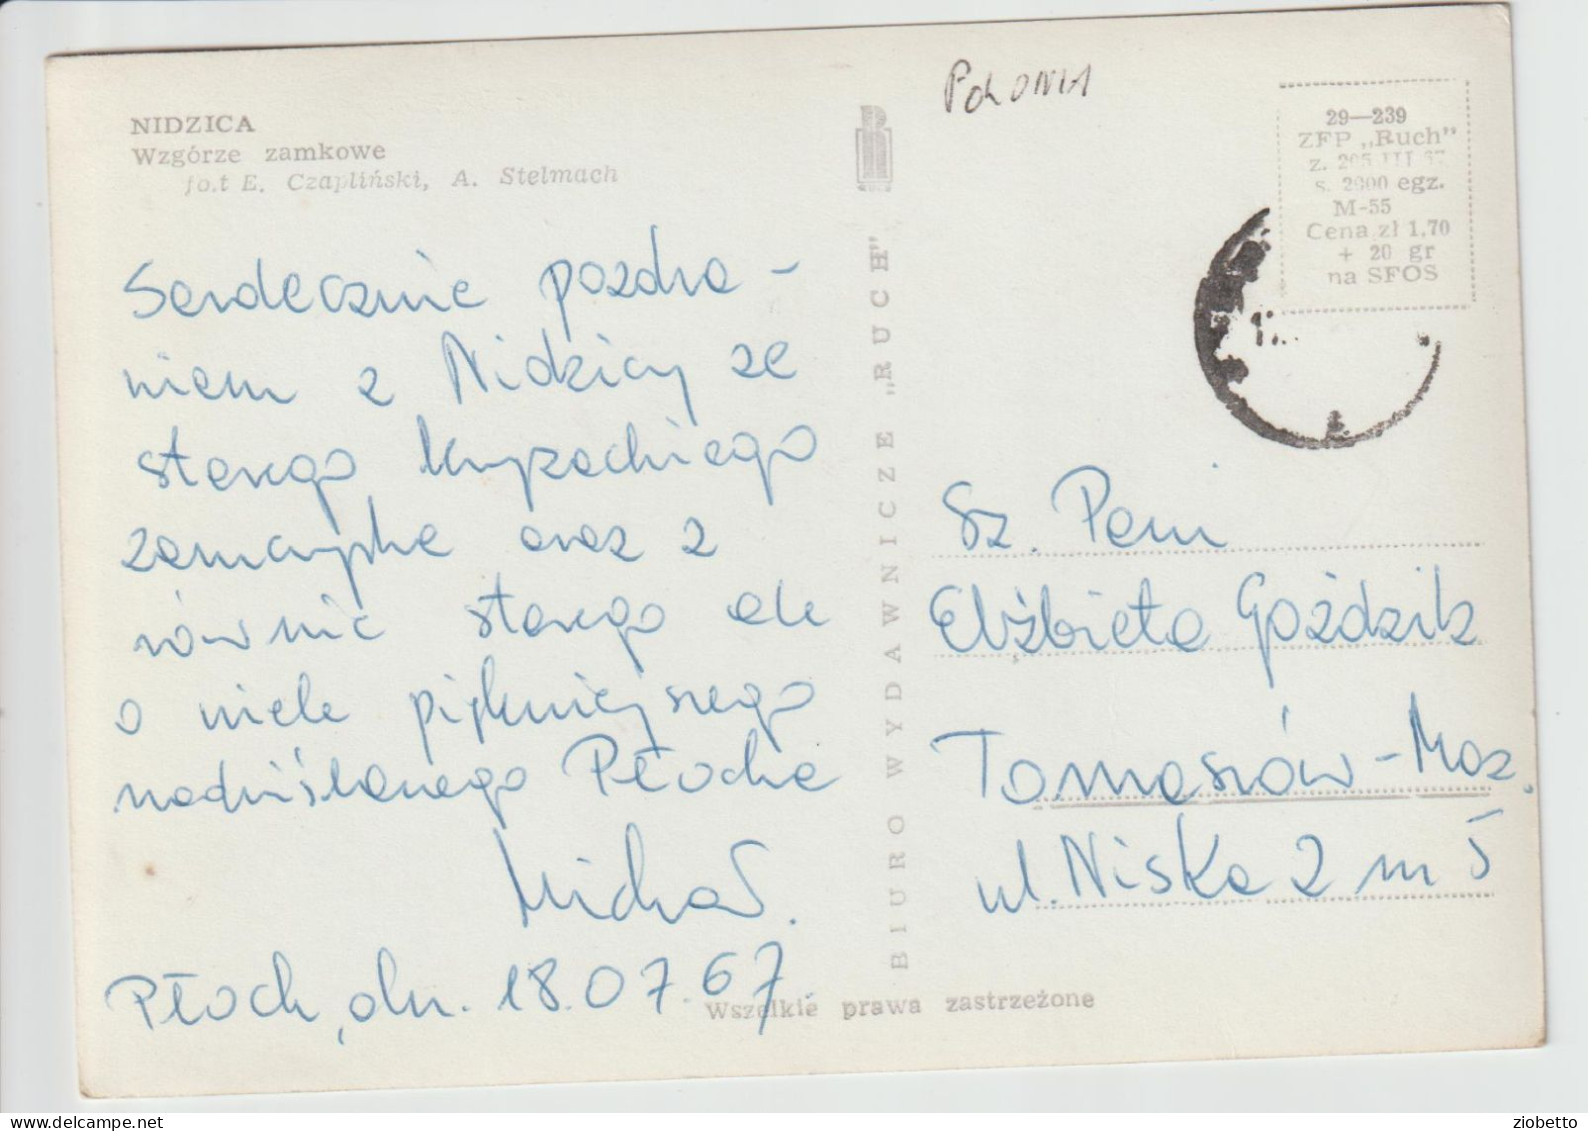 NIDZICA
Wzgórze zamkowe
fo.t E. Czapliński, A. Stelmach
Serdecznie pozdra-
niem z Nidzicy ze
starego krzyzackiego
zamczyska oraz z
równie starego ale
o wiele piękniejszego
nadwiślanego Płocka
Michał.
Płock, dn. 18.07.67
BIURO WYDAWNICZE „RUCH"
Wszelkie prawa zastrzeżone
POLONIA
29—239
ZFP „Ruch"
z. 205 III 67
s. 2000 egz.
M-55
Cena zł 1,70
+ 20 gr
na SFOS
Sz. Pani
Elżbieta Goździk
Tomaszów-Maz.
ul. Niska 2 m 5
ziobetto
delcampe.net